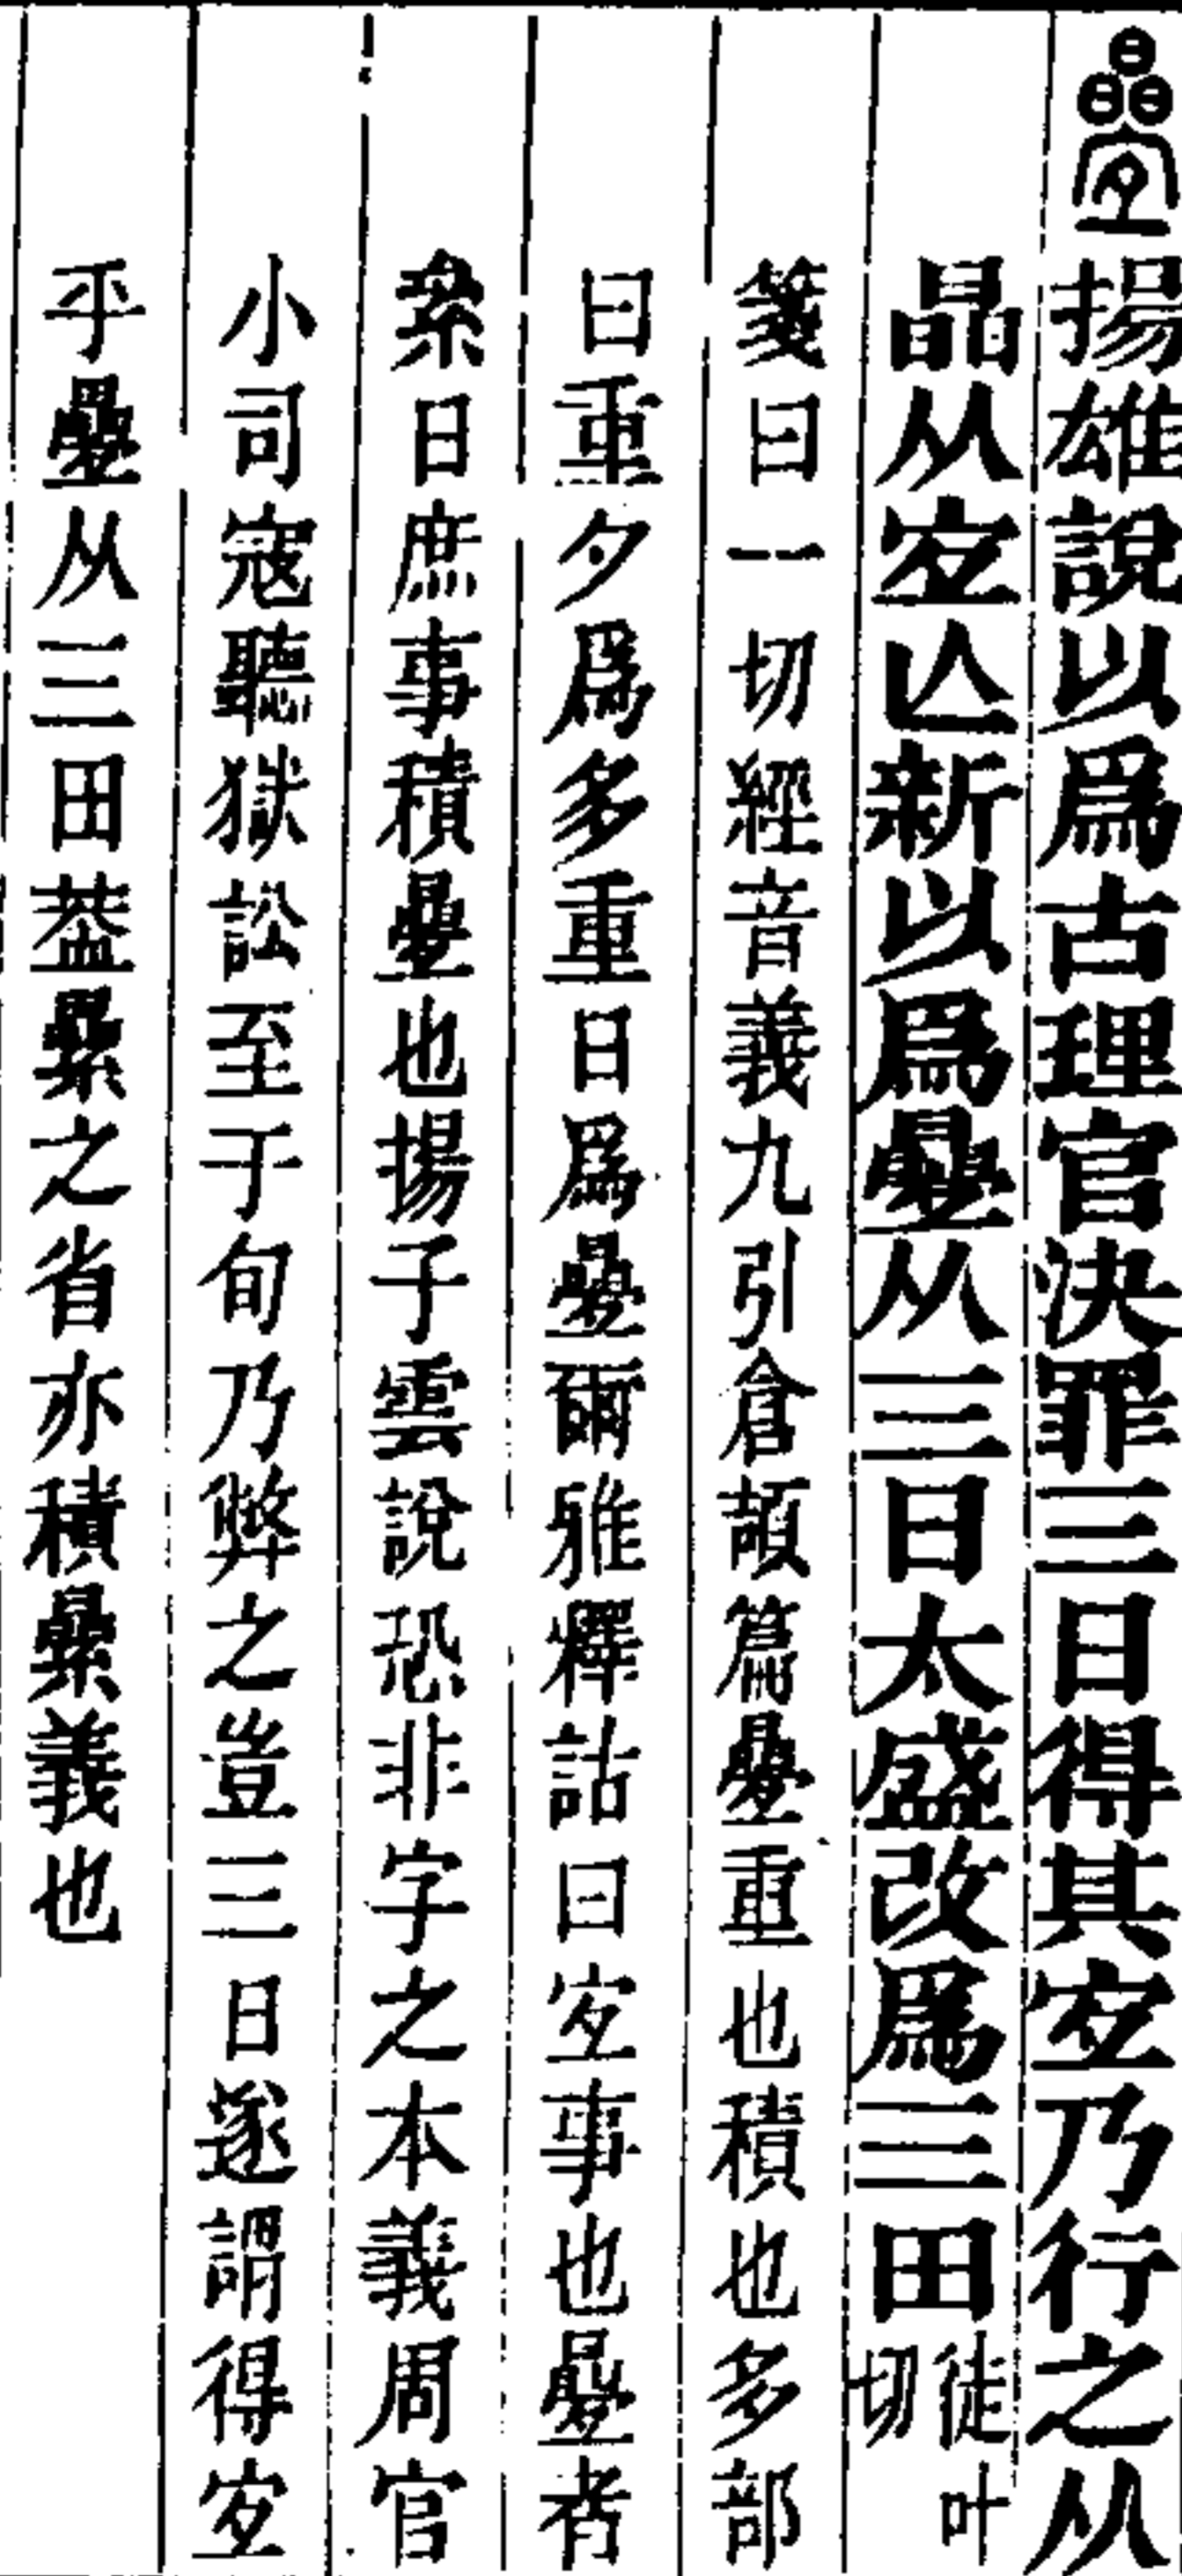 揚雄說以爲古理官決罪三日得其宐乃行之从
晶从宐亾新以爲疊从三日太盛改爲三田徒叶切
箋曰一切經音義九引倉頡篇疊重也積也多部
曰重夕爲多重日爲疊爾雅釋詁曰宐事也疊者
絫日庶事積疊也揚子雲說恐非字之本義周官
小司寇聽獄訟至于旬乃弊之豈三日遂謂得宐
乎疊从三田葢纍之省亦積纍義也